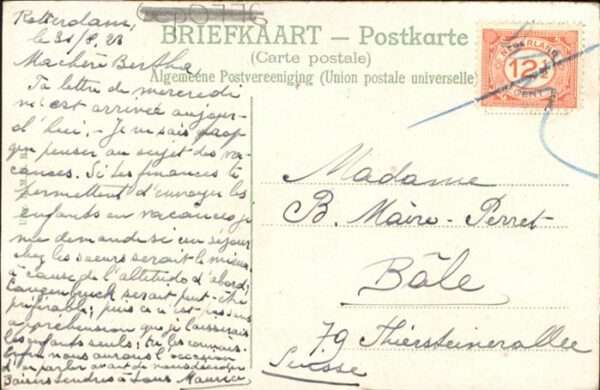 Rotterdam,
le 31/8. 23
Ma chère Bertha,
Ta lettre de mercredi
m'est arrivée aujour-
d'hui. - Je ne sais trop
que penser au sujet des va-
cances. Si tes finances te
permettent d'envoyer les
enfants en vacances, je
me demande si un séjour
chez les soeurs serait le mieux
à cause de l'altitude d'abord;
Langenbruck serait peut-être
préférable; puis ce n'est pas sans
appréhension que je laisserais
les enfants seuls; tu les connais.
Enfin nous aurons l'occasion
d'en parler avant de nous décider
Baisers tendres à tous Maurice
BRIEFKAART — Postkarte
(Carte postale)
Algemeene Postvereeniging (Union postale universelle)
NEDERLAND
12½
CENT
Madame
B. Maire-Perret
Bâle
79 Thiersteinerallee
Suisse